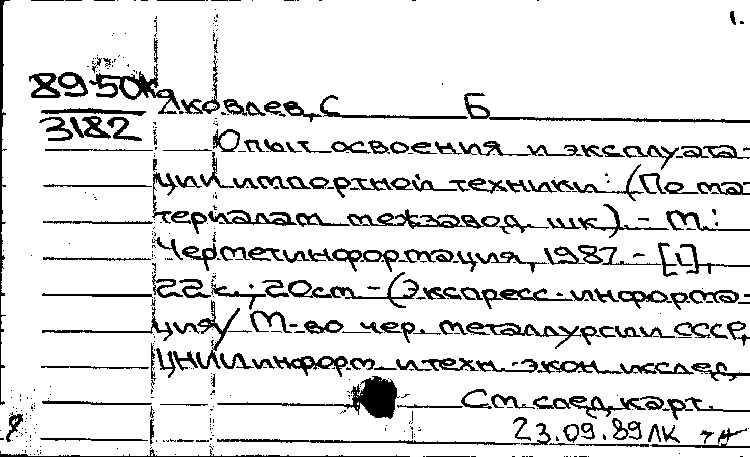 1.
89-50к
3182
Яковлев, С Б
Опыт освоения и эксплуата-
ции импортной техники: (По ма-
териалам межзавод. шк). - М.:
Черметинформация, 1987. - [1],
22 с.; 20 см. - (Экспресс-информа-
ция / М-во чер. металлургии СССР,
ЦНИИинформ. и техн.-экон. исслед.
См. след. карт.
23.09.89 ЛК